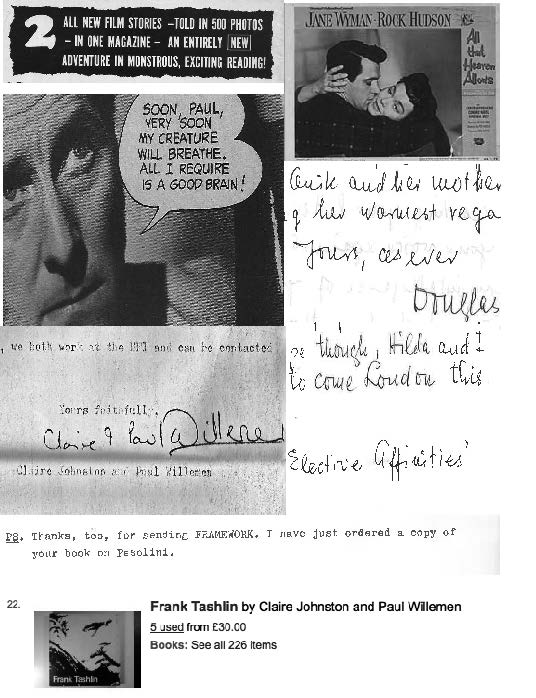 2 ALL NEW FILM STORIES -TOLD IN 500 PHOTOS
- IN ONE MAGAZINE - AN ENTIRELY NEW
ADVENTURE IN MONSTROUS, EXCITING READING!
JANE WYMAN·ROCK HUDSON
All
that
Heaven
Allows
SOON, PAUL,
VERY SOON
MY CREATURE
WILL BREATHE.
ALL I REQUIRE
IS A GOOD BRAIN!
and her mother
her warmest rega
Yours, as ever
Douglas
though, Hilda and I
to come London this
Elective Affinities'
, we both work at the BFI and can be contacted
Yours faithfully,
Claire & Paul Willemen
Claire Johnston and Paul Willemen
PS. Thanks, too, for sending FRAMEWORK. I have just ordered a copy of
your book on Pasolini.
22.
Frank Tashlin by Claire Johnston and Paul Willemen
5 used from £30.00
Books: See all 226 items
Frank Tashlin